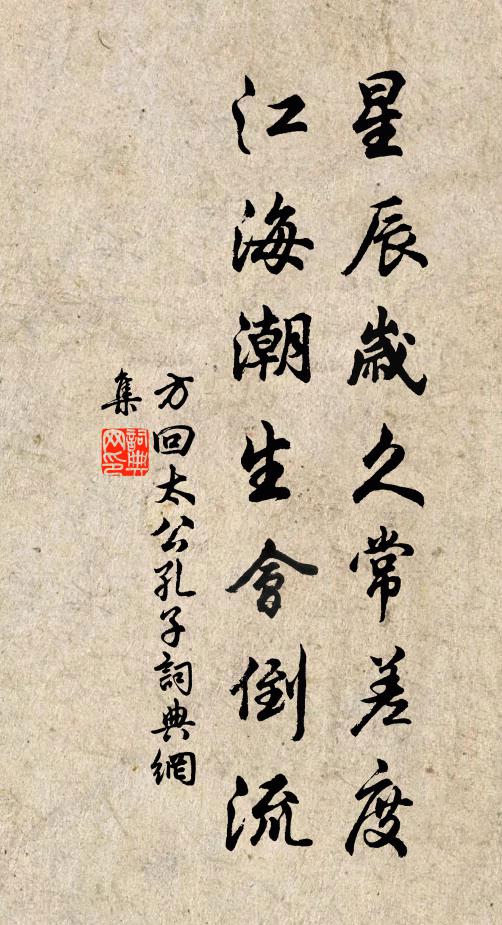 星辰歲久常差度
江海潮生會倒流
方回太公孔子詞典網
集
詞典網印